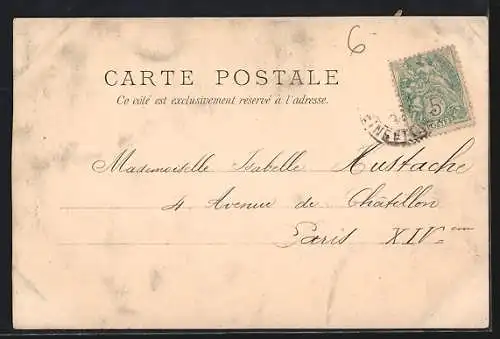 6
CARTE POSTALE
Ce côté est exclusivement réservé à l'adresse.
5
Mademoiselle Isabelle Mustache
4 Avenue de Châtillon
Paris XIVème